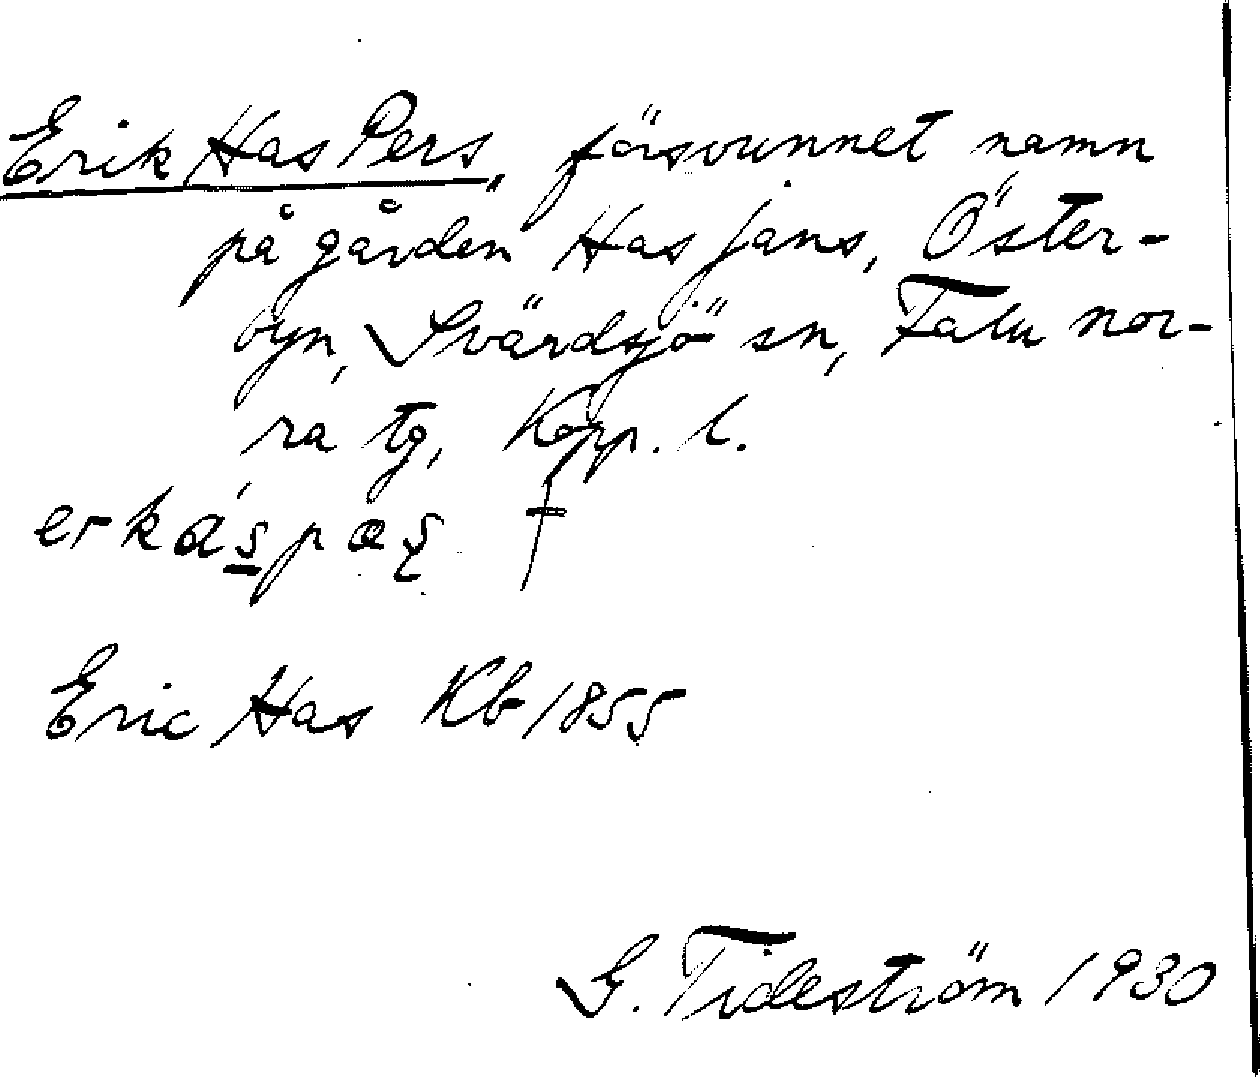 Erik Has Pers, försvunnet namn
på gården Has Jans, Öster-
byn, Svärdsjö sn, Falu nor-
ra tg, Kopp. l.
Eric Has Kb 1855
G. Tideström 1930